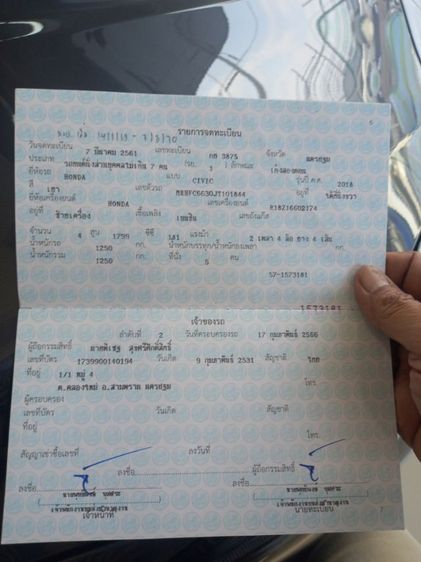 รายการจดทะเบียน
วันจดทะเบียน 7 มีนาคม 2561 เลขทะเบียน กษ 3875 จังหวัด นครปฐม
ประเภท รถยนต์นั่งส่วนบุคคลไม่เกิน 7 คน (รย. 1 ) ลักษณะ เก๋งสองตอน
ยี่ห้อรถ HONDA แบบ CIVIC รุ่นปี ค.ศ. 2018
สี เทา เลขตัวรถ อยู่ที่
ยี่ห้อเครื่องยนต์ HONDA เลขเครื่องยนต์ R18Z16602174
อยู่ที่ ซ้ายเครื่อง เชื้อเพลิง เบนซิน เลขถังแก๊ส
จำนวน 4 สูบ 1799 ซีซี 141 แรงม้า 2 เพลา 4 ล้อ ยาง 4 เส้น
น้ำหนักรถ 1250 กก. น้ำหนักบรรทุก/น้ำหนักลงเพลา กก.
น้ำหนักรวม 1250 กก. ที่นั่ง 5 คน
57-1573181
1573181
เจ้าของรถ
ลำดับที่ 2 วันที่ครอบครองรถ 17 กุมภาพันธ์ 2566
ผู้ถือกรรมสิทธิ์
เลขที่บัตร 1739900140194 วันเกิด 9 กุมภาพันธ์ 2531 สัญชาติ ไทย
ที่อยู่ 1/1 หมู่ 4 โทร.
ต.คลองใหม่ อ.สามพราน นครปฐม
ผู้ครอบครอง
เลขที่บัตร วันเกิด สัญชาติ
ที่อยู่
โทร.
สัญญาเช่าซื้อเลขที่ ลงวันที่
ลงชื่อ ผู้ถือกรรมสิทธิ์
ลงชื่อ ลงชื่อ
เจ้าหน้าที่ นายทะเบียน